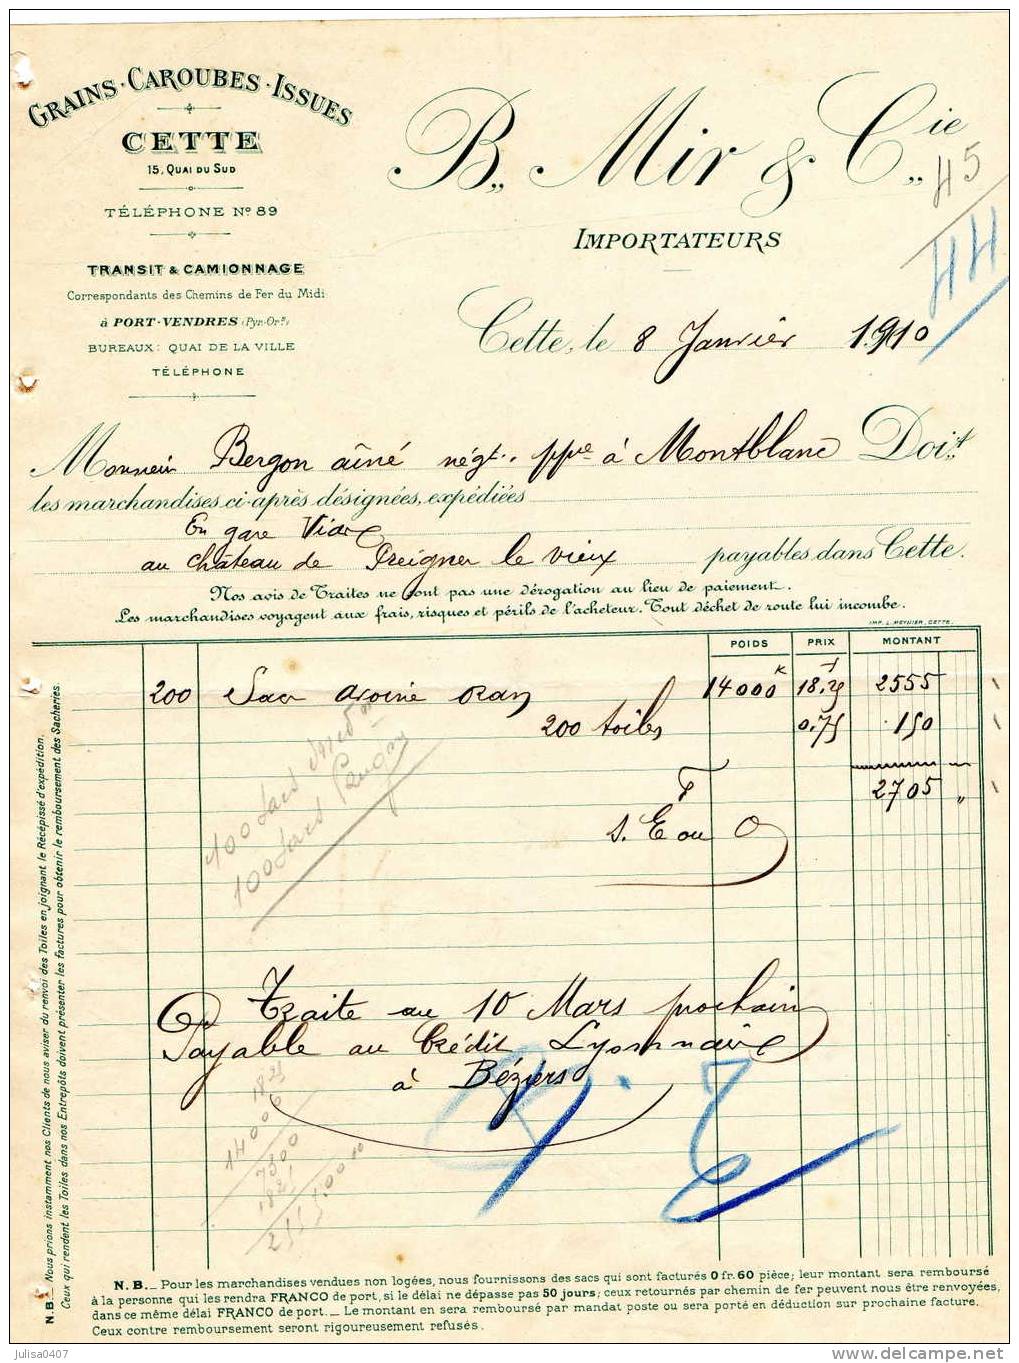 GRAINS · CAROUBES · ISSUES
CETTE
15, QUAI DU SUD
TÉLÉPHONE Nº 89
TRANSIT & CAMIONNAGE
Correspondants des Chemins de Fer du Midi
à PORT-VENDRES (Pyr.-Or.les)
BUREAUX: QUAI DE LA VILLE
TÉLÉPHONE
B,, Mir & Cie,,
IMPORTATEURS
45
44
Cette, le 8 Janvier 1910
Monsieur Bergon aîné négt. ppre à Montblanc Doit
les marchandises ci-après désignées, expédiées
En gare Vias
au château de Preignes le vieux payables dans Cette.
Nos avis de Traites ne sont pas une dérogation au lieu de paiement.
Les marchandises voyagent aux frais, risques et périls de l'acheteur. Tout déchet de route lui incombe.
IMP. L. PEYRIER, CETTE.
POIDS PRIX MONTANT
200 Sacs avoine Oran 14000 K 18,25 2555
200 toiles 0.75 150
F 2705 "
S. E ou O
100 sacs
100 sacs
Traite au 10 Mars prochain
Payable au Crédit Lyonnais
à Béziers
18 25
14000
7300
1825
N.B._ Nous prions instamment nos Clients de nous aviser du renvoi des Toiles en joignant le Récépissé d'expédition.
Ceux qui rendent les Toiles dans nos Entrepôts doivent présenter les factures pour obtenir le remboursement des Sacheries.
N.B._ Pour les marchandises vendues non logées, nous fournissons des sacs qui sont facturés 0 fr. 60 pièce; leur montant sera remboursé
à la personne qui les rendra FRANCO de port, si le délai ne dépasse pas 50 jours; ceux retournés par chemin de fer peuvent nous être renvoyées,
dans ce même délai FRANCO de port._ Le montant en sera remboursé par mandat poste ou sera porté en déduction sur prochaine facture.
Ceux contre remboursement seront rigoureusement refusés.
Julisa0407
www.delcampe.net